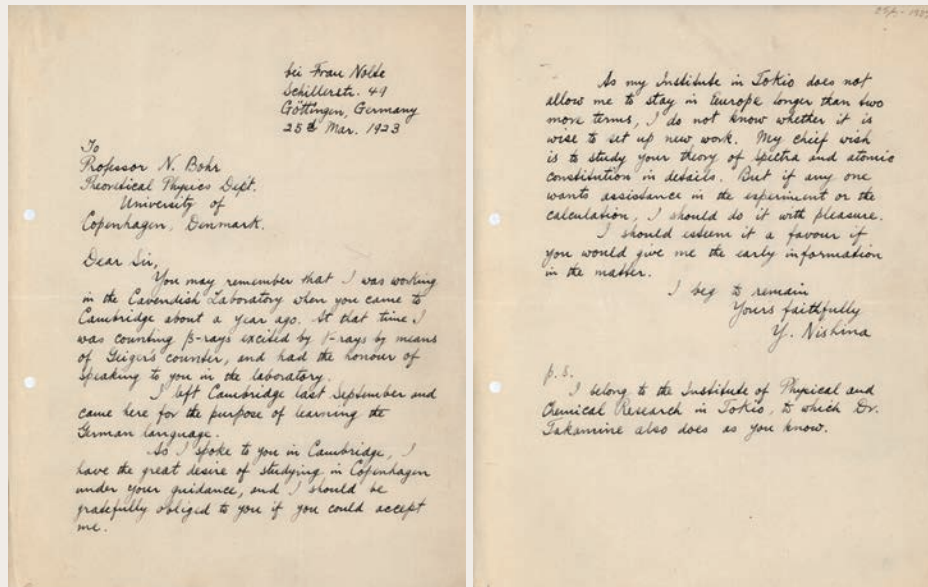 bei Frau Nolte
Schillerstr. 49
Göttingen, Germany
25th Mar. 1923
To
Professor N. Bohr
Theoretical Physics Dept.
University of
Copenhagen, Denmark.
Dear Sir,
You may remember that I was working
in the Cavendish Laboratory when you came to
Cambridge about a year ago. At that time I
was counting β-rays excited by γ-rays by means
of Geiger's counter, and had the honour of
speaking to you in the laboratory.
I left Cambridge last September and
came here for the purpose of learning the
German language.
As I spoke to you in Cambridge, I
have the great desire of studying in Copenhagen
under your guidance, and I should be
gratefully obliged to you if you could accept
me.
As my Institute in Tokio does not
allow me to stay in Europe longer than two
more terms, I do not know whether it is
wise to set up new work. My chief wish
is to study your theory of spectra and atomic
constitution in details. But if any one
wants assistance in the experiment or the
calculation, I should do it with pleasure.
I should esteem it a favour if
you would give me the early information
in the matter.
I beg to remain
Yours faithfully
Y. Nishina
p.s.
I belong to the Institute of Physical and
Chemical Research in Tokio, to which Dr.
Takamine also does as you know.